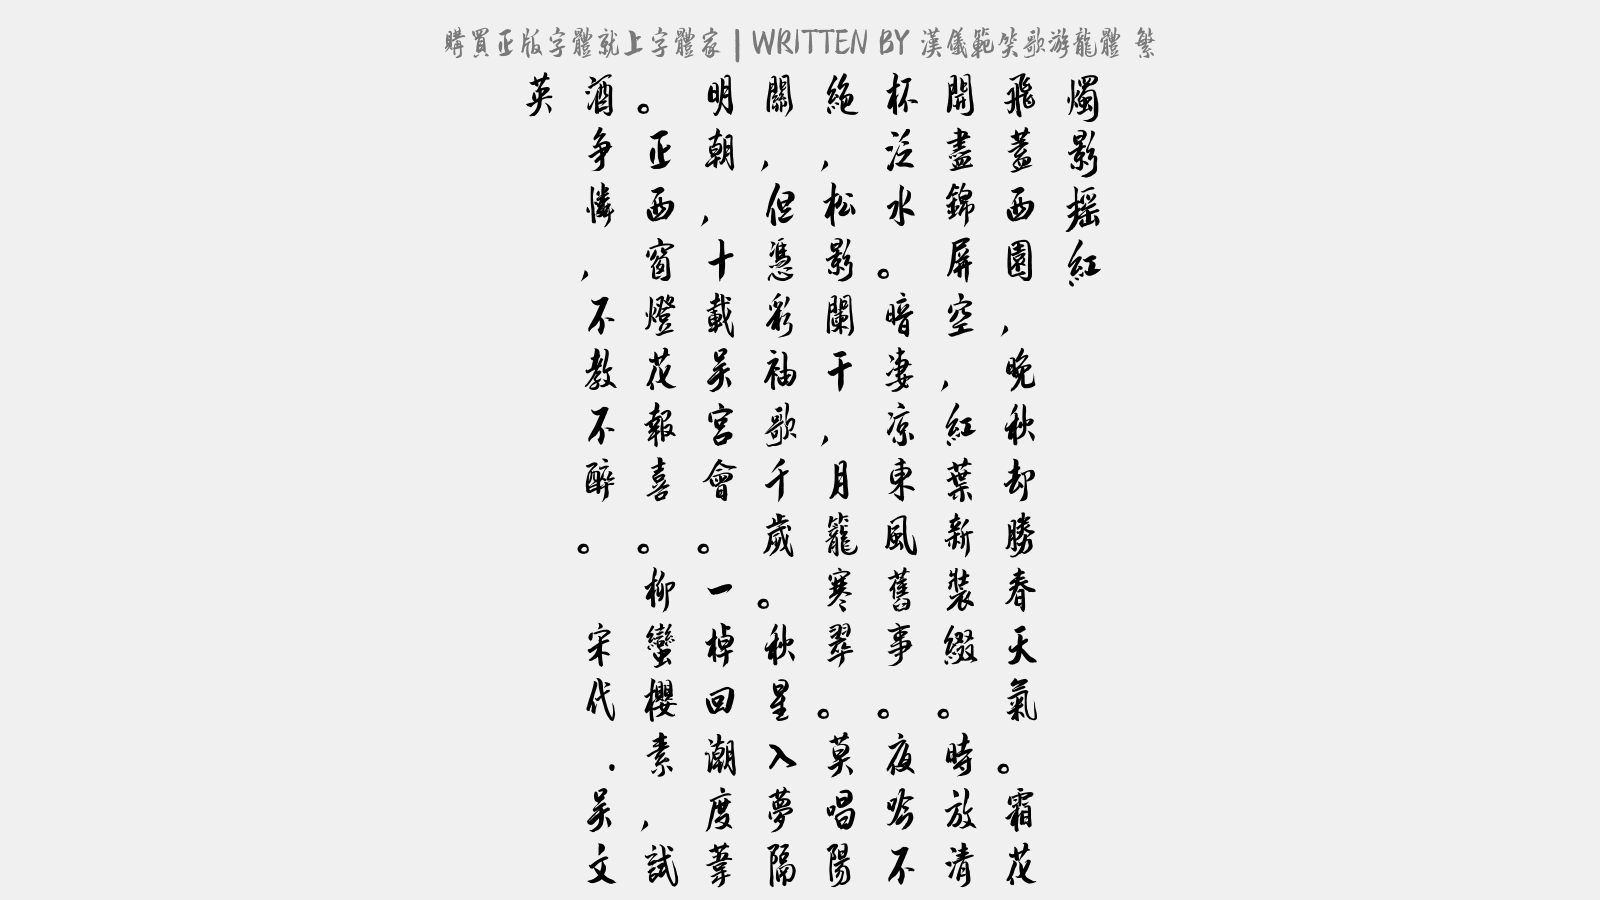 購買正版字體就上字體家 | WRITTEN BY 漢儀範笑歌游龍體 繁
燭影搖紅
飛蓋西園，晚秋却勝春天氣。霜花
開盡錦屏空，紅葉新裝綴。時放清
杯泛水。暗凄凉東風舊事。夜吟不
絕，松影闌干，月籠寒翠。莫唱陽
關，但憑彩袖歌千歲。秋星入夢隔
明朝，十載吴宮會。一棹回潮度葦
。正西窗燈花報喜。柳蠻櫻素，試
酒争憐，不教不醉。 宋代.吴文
英